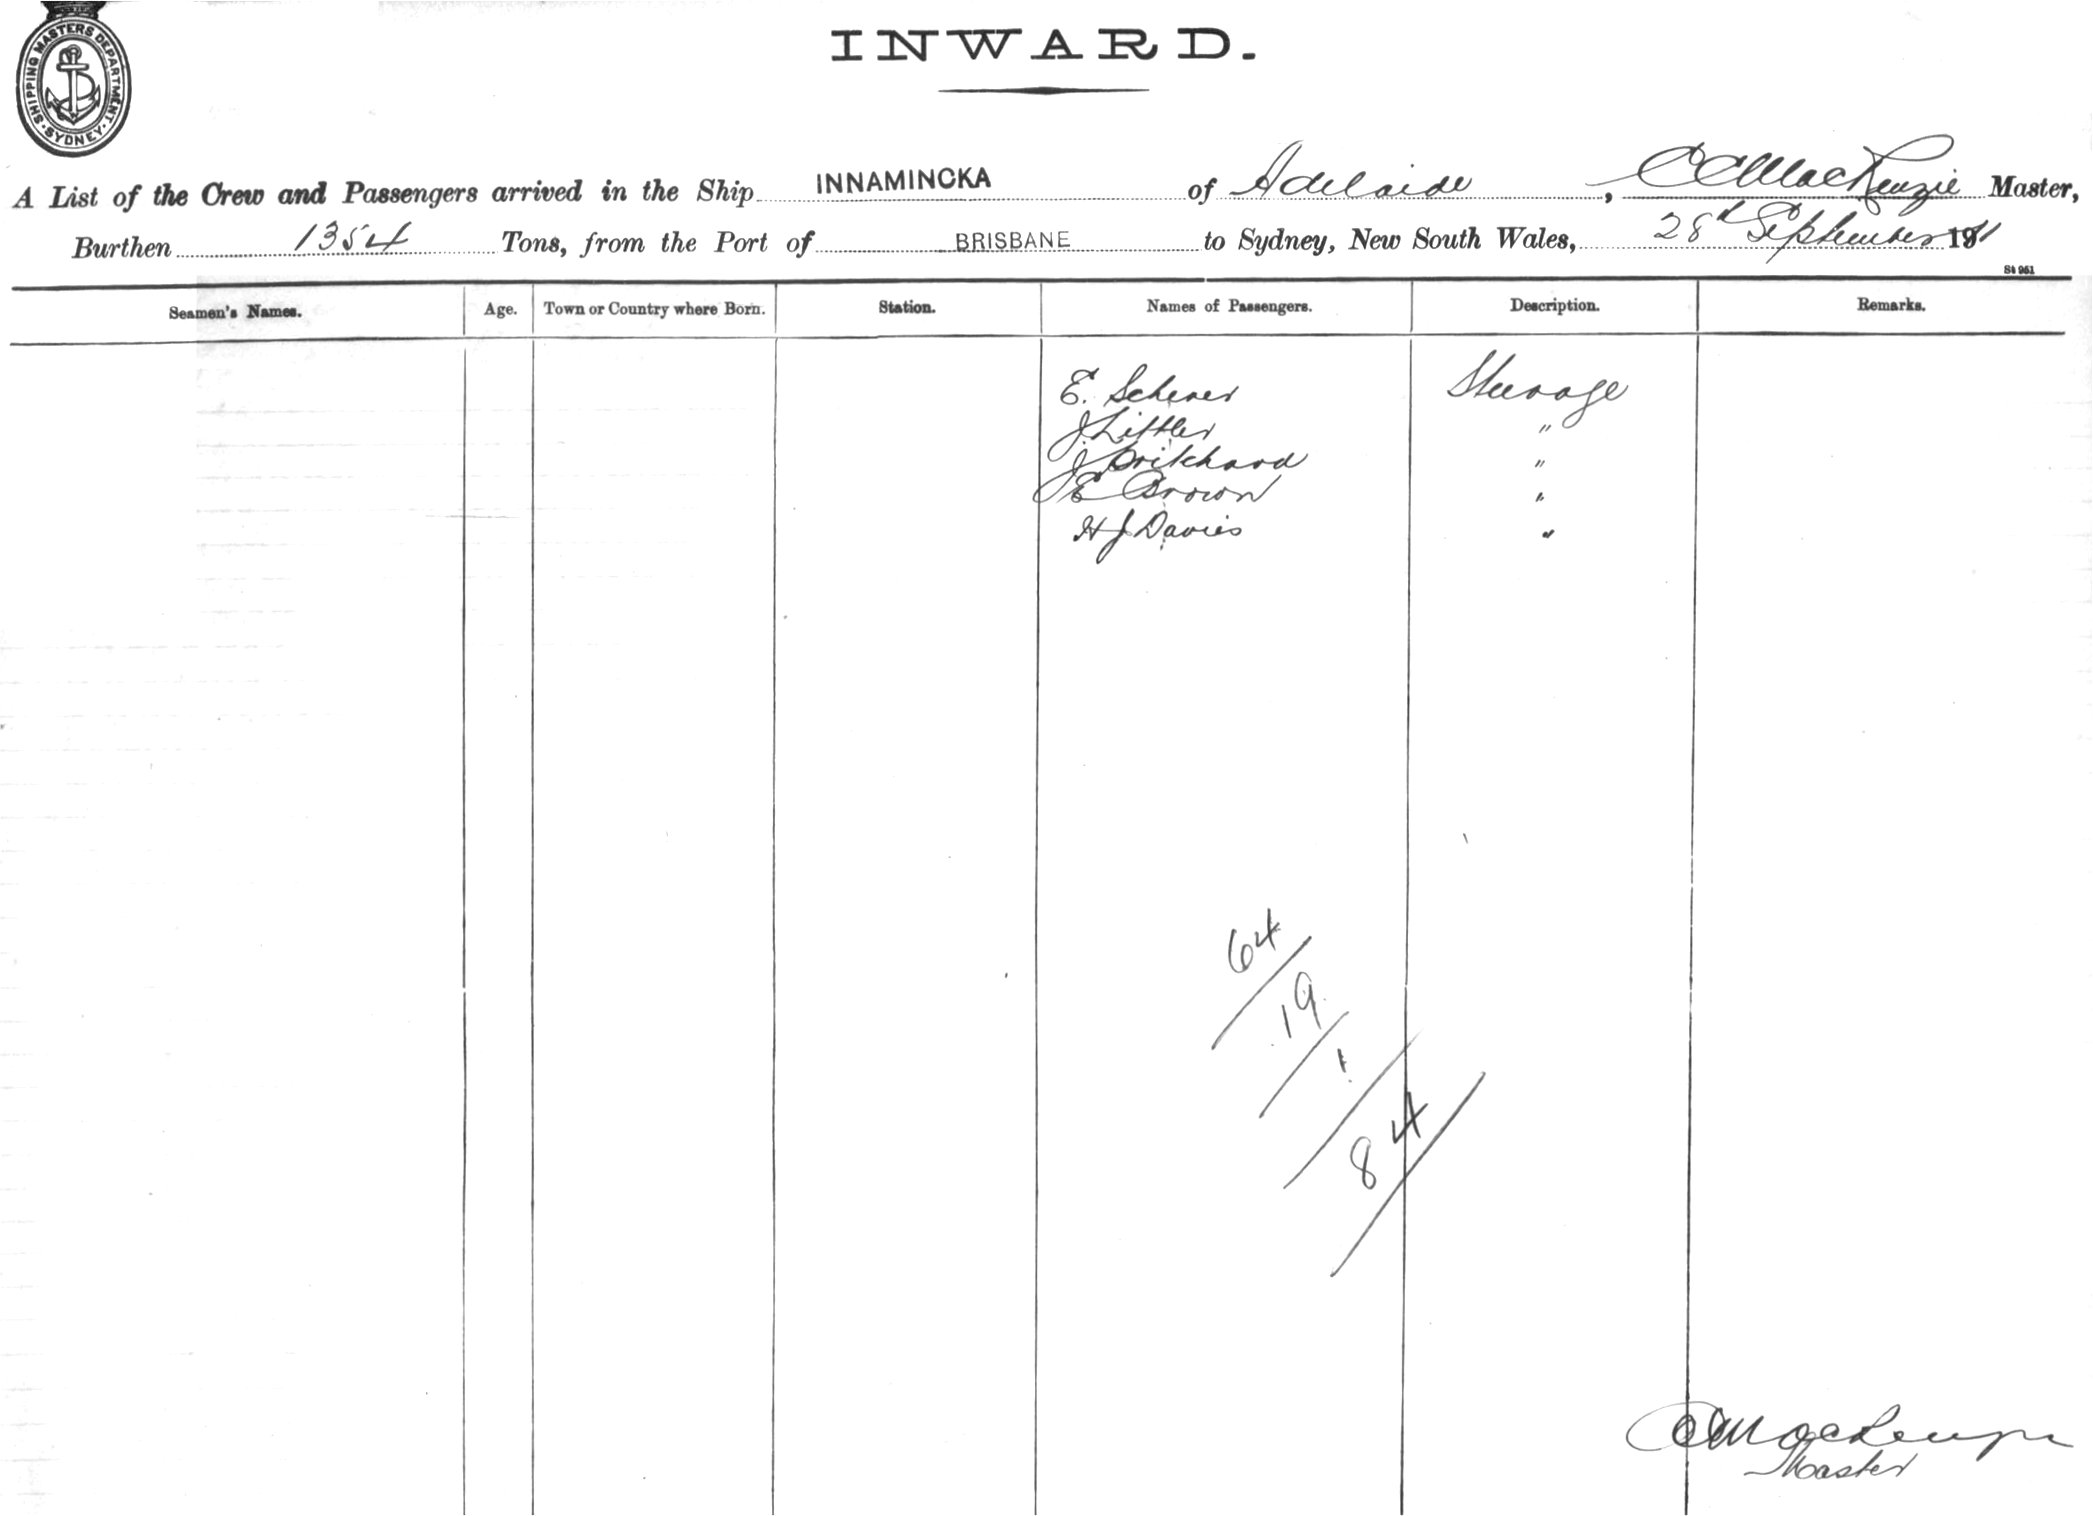 SHIPPING MASTERS DEPARTMENT · SYDNEY ·
INWARD.
A List of the Crew and Passengers arrived in the Ship INNAMINCKA of Adelaide, C C MacKenzie Master,
Burthen 1354 Tons, from the Port of BRISBANE to Sydney, New South Wales, 28th September 1911
St 951
Seamen's Names. Age. Town or Country where Born. Station. Names of Passengers. Description. Remarks.
E. Scherer Steerage
J. Littler "
J Pritchard "
E Brown "
H J Davies "
64
19
1
84
C C MacKenzie
Master